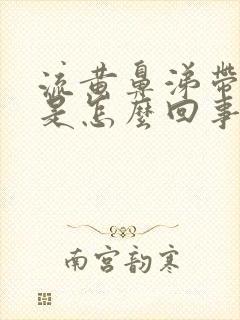 流黄鼻涕带
是怎麼回事
南宫韵寒